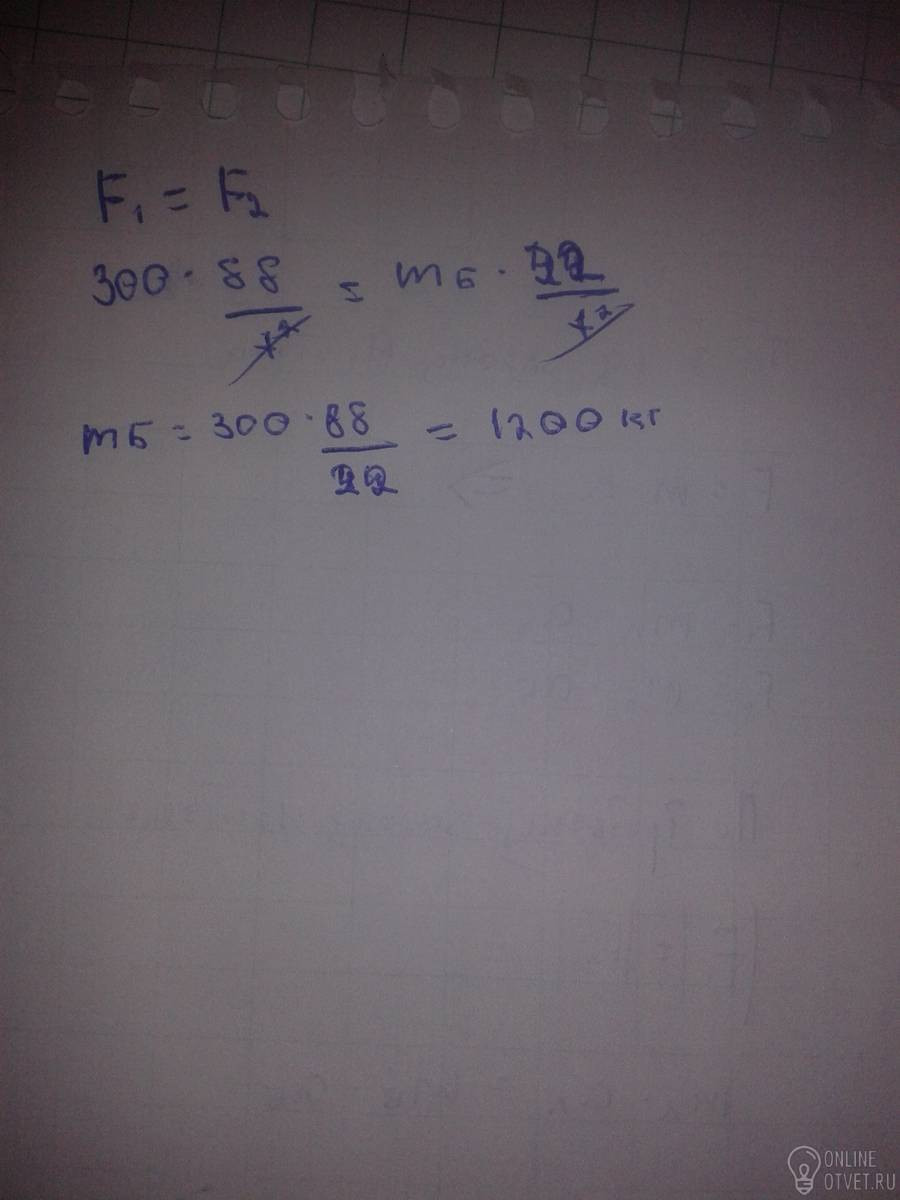 F₁ = F₂
300 · 88/t² = mБ · 22/t²
mБ = 300 · 88/22 = 1200 кг
ONLINE
OTVET.RU